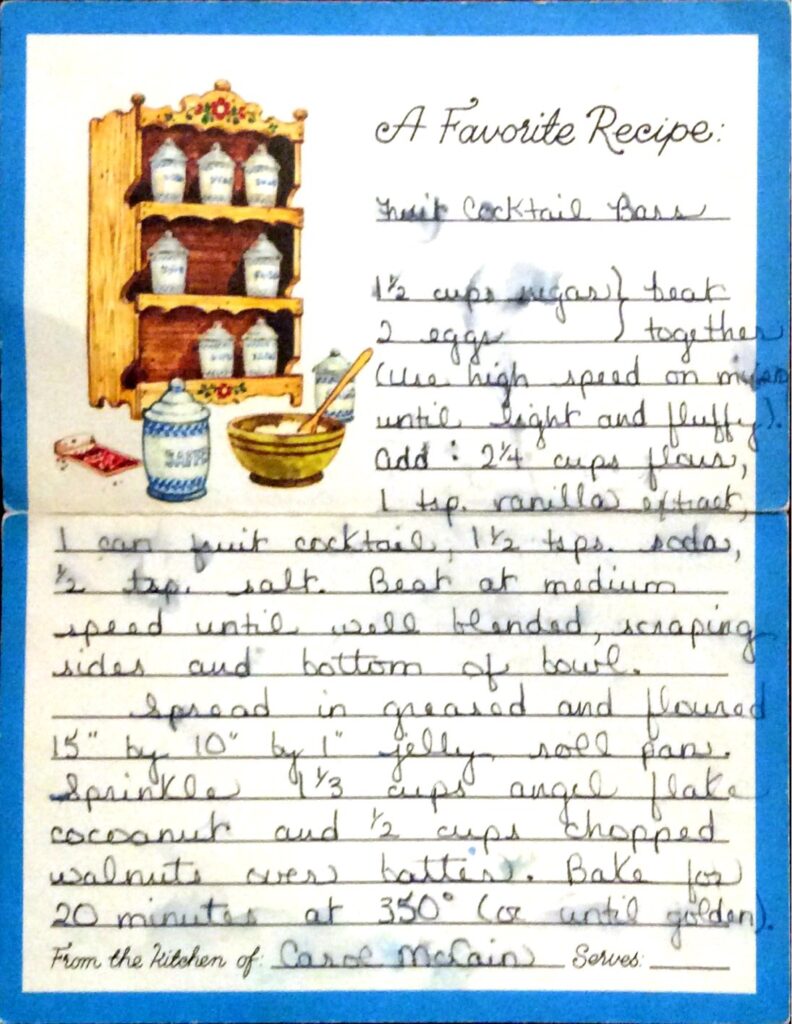 A Favorite Recipe:
Fruit Cocktail Bars
1 1/2 cups sugar } beat
2 eggs } together
(use high speed on mixer
until light and fluffy).
Add: 2 1/4 cups flour,
1 tsp. vanilla extract,
1 can fruit cocktail, 1 1/2 tsps. soda,
1/2 tsp. salt. Beat at medium
speed until well blended, scraping
sides and bottom of bowl.
Spread in greased and floured
15" by 10" by 1" jelly roll pan.
Sprinkle 1 1/3 cups angel flake
cocoanut and 1/2 cups chopped
walnuts over batter. Bake for
20 minutes at 350° (or until golden).
From the Kitchen of: Carol McCain Serves: